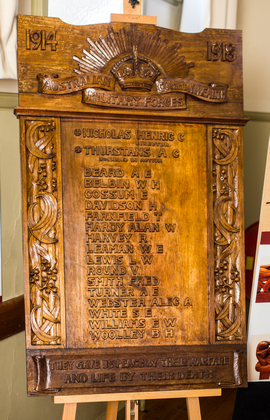 1914 1918
AUSTRALIAN
MILITARY FORCES
NICHOLAS HENRIC C
THURSTANS A C
BEARD A E
BELBIN W H
COSSUM E
DAVIDSON J
FARNFIELD T
HARDY ALAN W
HARVEY R
LEAMAN W E
LEWIS L W
ROUND V
SMITH FRED
TURNER A E
WEBSTER ALEC A
WHITE S E
WILLIAMS E W
WOOLLEY B H
THEY GAVE US PEACE BY THEIR WARFARE
AND LIFE BY THEIR DEATH